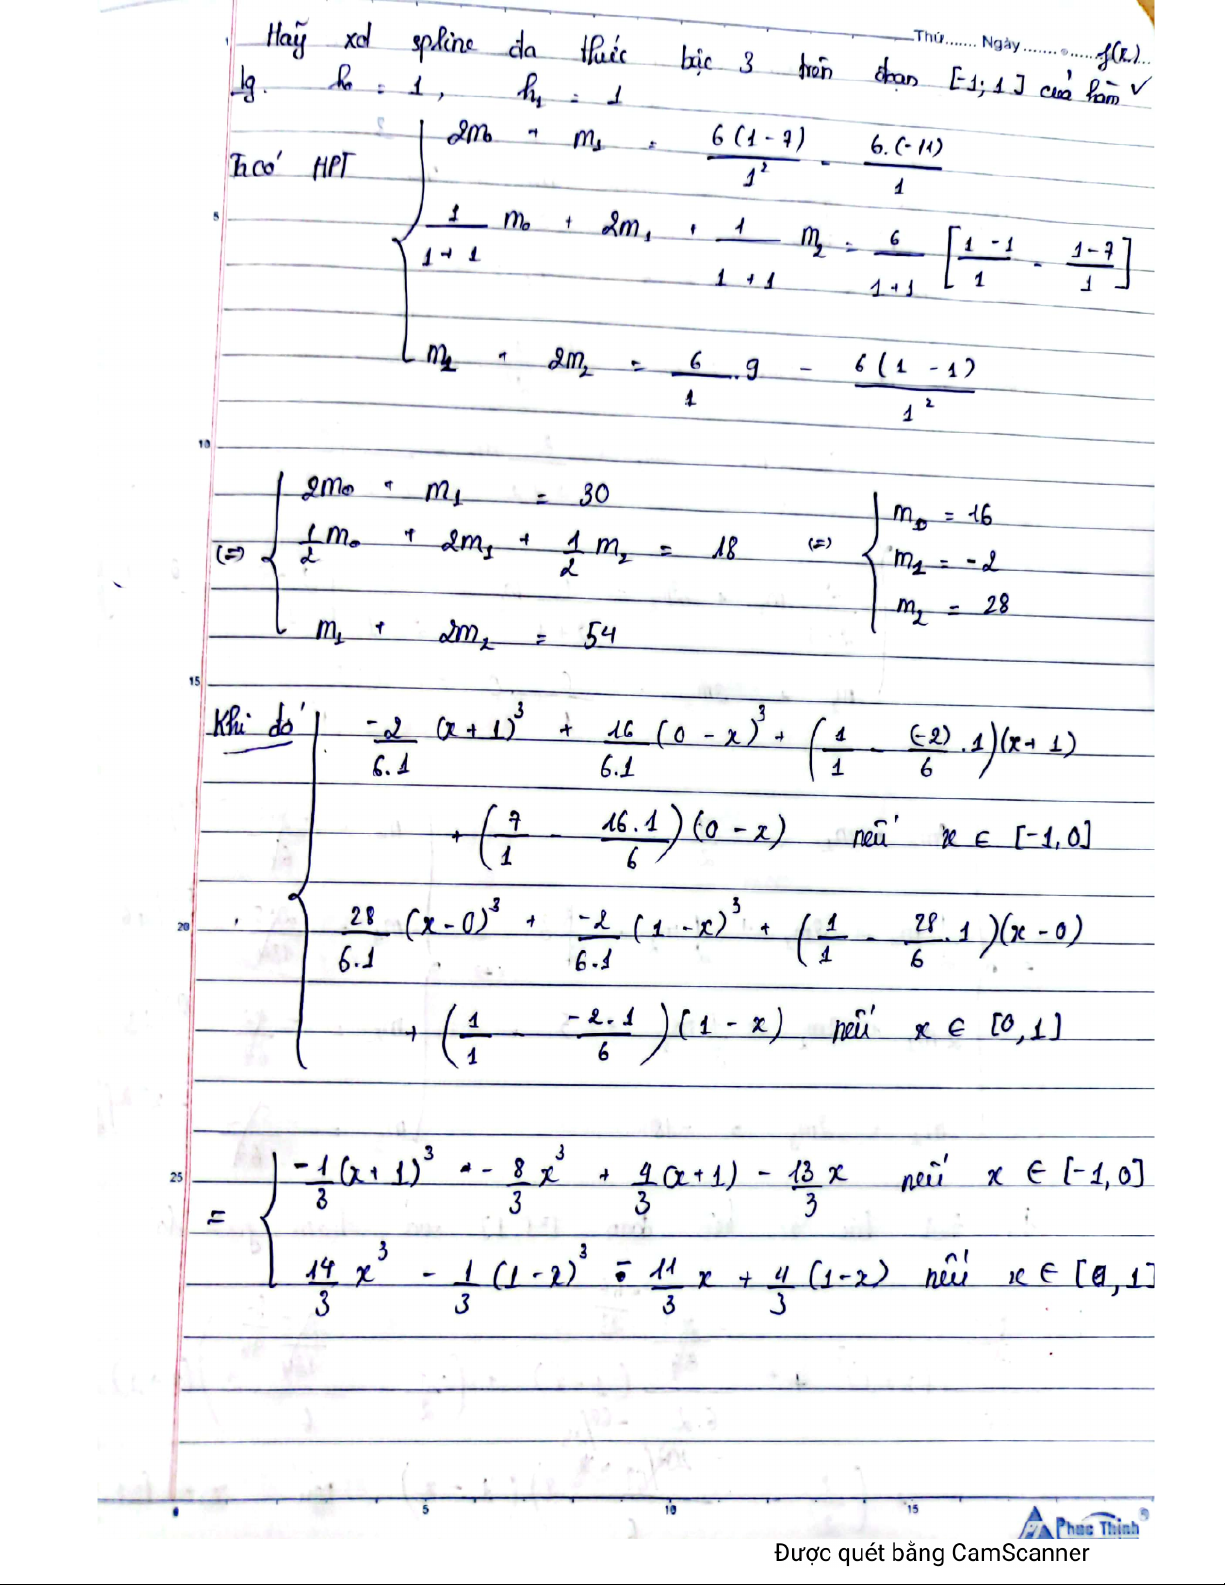 Thứ....... Ngày............. f(x)...
Hãy xd spline đa thức bậc 3 trên đoạn [-1; 1] của hàm ✓
lg. h₀ = 1, h₁ = 1
Ta có HPT { 2m₀ + m₁ = 6(1-7)/1² - 6.(-11)/1
1/(1+1) m₀ + 2m₁ + 1/(1+1) m₂ = 6/(1+1) [(1-1)/1 - (1-7)/1]
m₁ + 2m₂ = 6/1 .9 - 6(1-1)/1²
(=) { 2m₀ + m₁ = 30
1/2 m₀ + 2m₁ + 1/2 m₂ = 18
m₁ + 2m₂ = 54
(=) { m₀ = 16
m₁ = -2
m₂ = 28
Khi đó { -2/6.1 (x+1)³ + 16/6.1 (0-x)³ + (1/1 - (-2).1/6)(x+1)
+ (7/1 - 16.1/6)(0-x) nếu x ∈ [-1,0]
28/6.1 (x-0)³ + -2/6.1 (1-x)³ + (1/1 - 28.1/6)(x-0)
+ (1/1 - -2.1/6)(1-x) nếu x ∈ [0,1]
= { -1/3 (x+1)³ - 8/3 x³ + 4/3 (x+1) - 13/3 x nếu x ∈ [-1,0]
14/3 x³ - 1/3 (1-x)³ - 11/3 x + 4/3 (1-x) nếu x ∈ [0,1]
5
10
15
20
25
0 5 10 15
Phuc Thinh®
Được quét bằng CamScanner